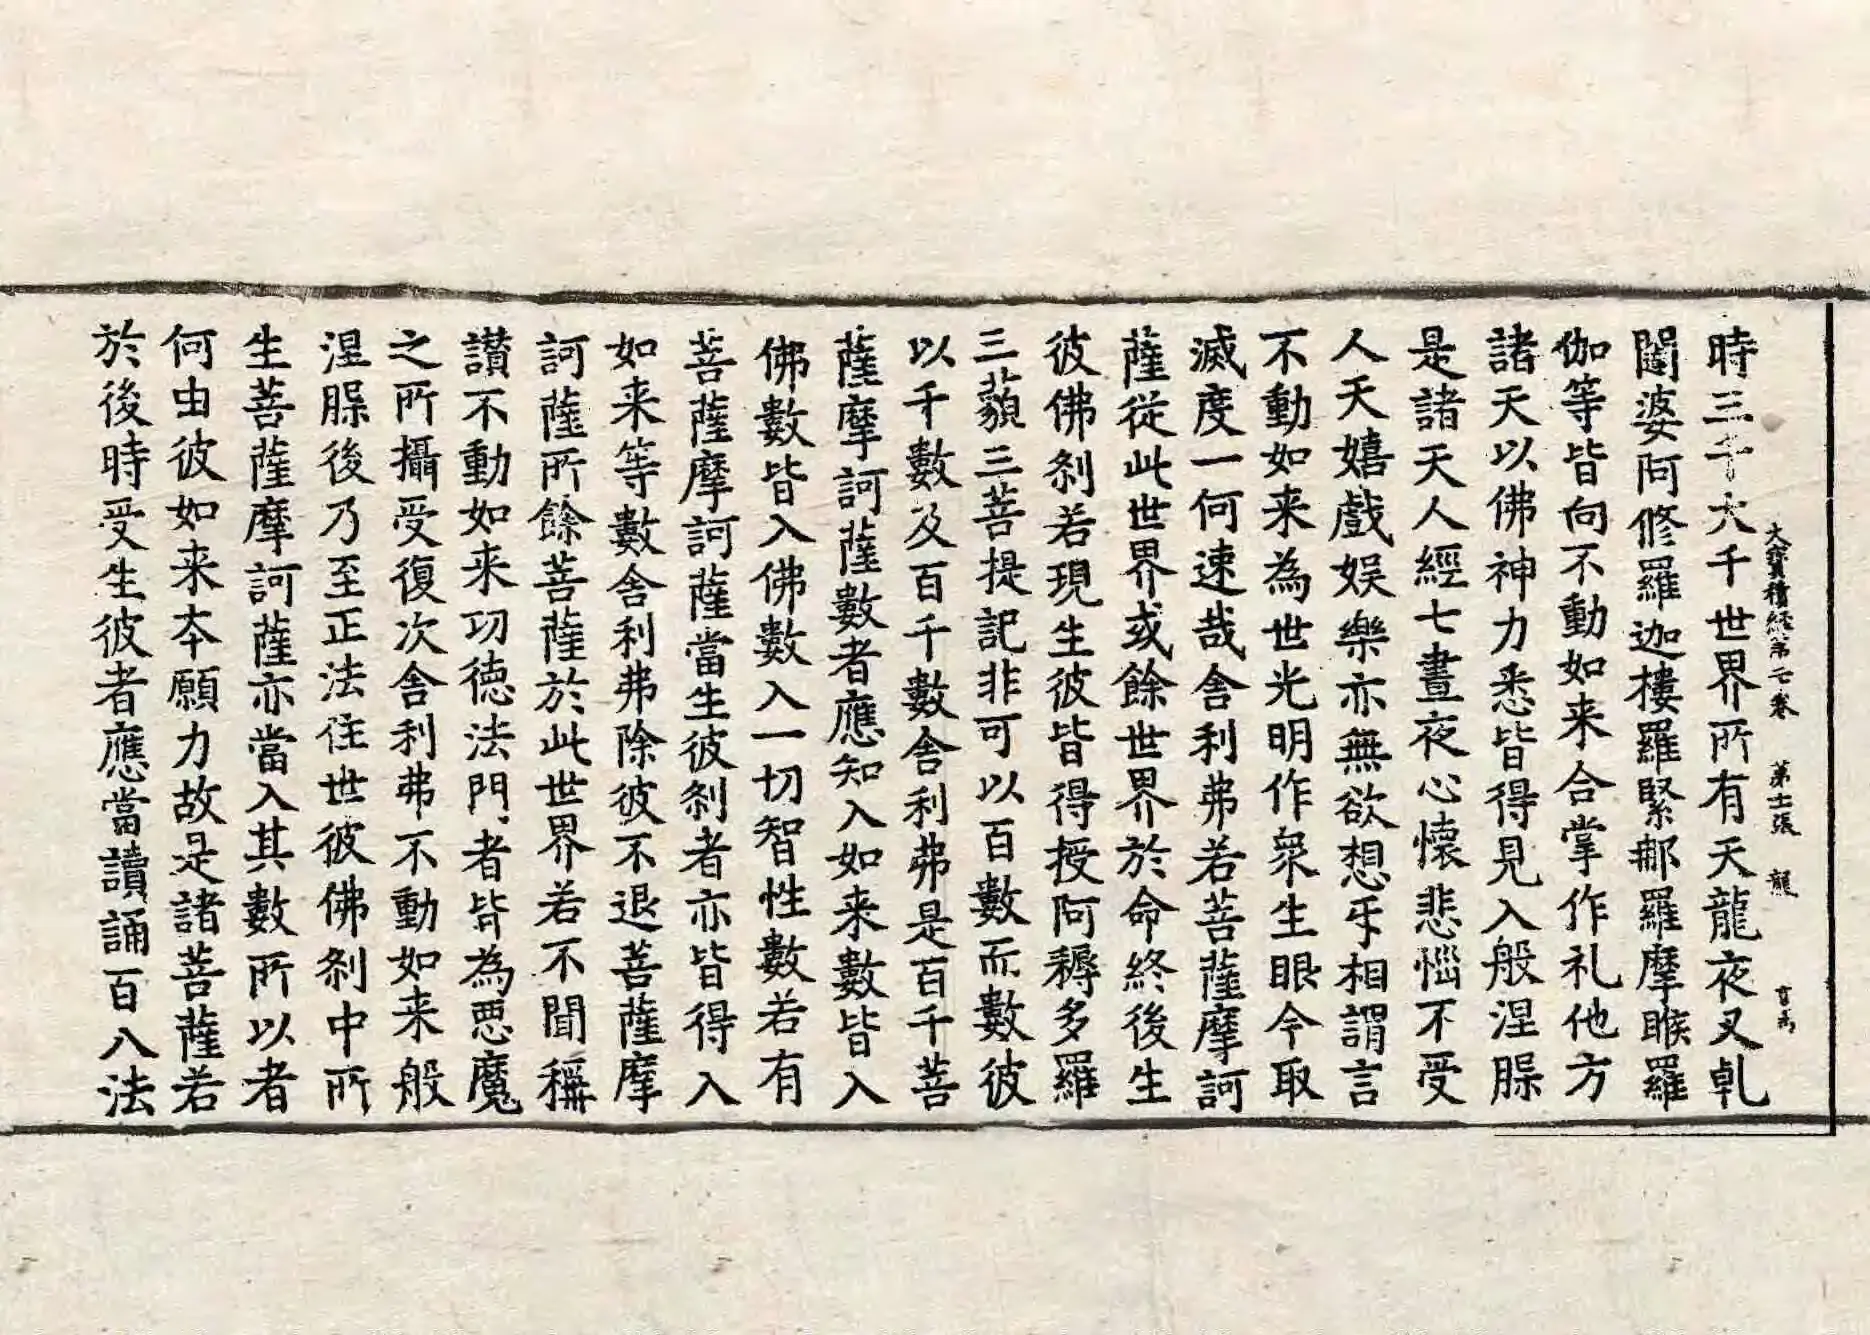 大寶積經第二十卷 第十二張 龍
時三千大千世界所有天龍夜叉乹
闥婆阿修羅迦樓羅緊那羅摩睺羅
伽等皆向不動如来合掌作礼他方
諸天以佛神力悉皆得見入般涅脲
是諸天人經七晝夜心懷悲惱不受
人天嬉戲娱樂亦無欲想㸦相謂言
不動如来為世光明作衆生眼今取
滅度一何速哉舍利弗若菩薩摩訶
薩從此世界或餘世界於命終後生
彼佛刹若現生彼皆得授阿耨多羅
三藐三菩提記非可以百數而數彼
以千數及百千數舍利弗是百千菩
薩摩訶薩數者應知入如来數皆入
佛數皆入佛數數入一切智性數若有
菩薩摩訶薩當生彼刹者亦皆得入
如来等數舍利弗除彼不退菩薩摩
訶薩所餘菩薩於此世界若不聞稱
讃不動如来㓛德法門者皆為悪魔
之所攝受復次舍利弗不動如来般
涅脲後乃至正法住世彼佛刹中所
生菩薩摩訶薩亦當入其數所以者
何由彼如来本願力故是諸菩薩若
於後時受生彼者應當讀誦百八法